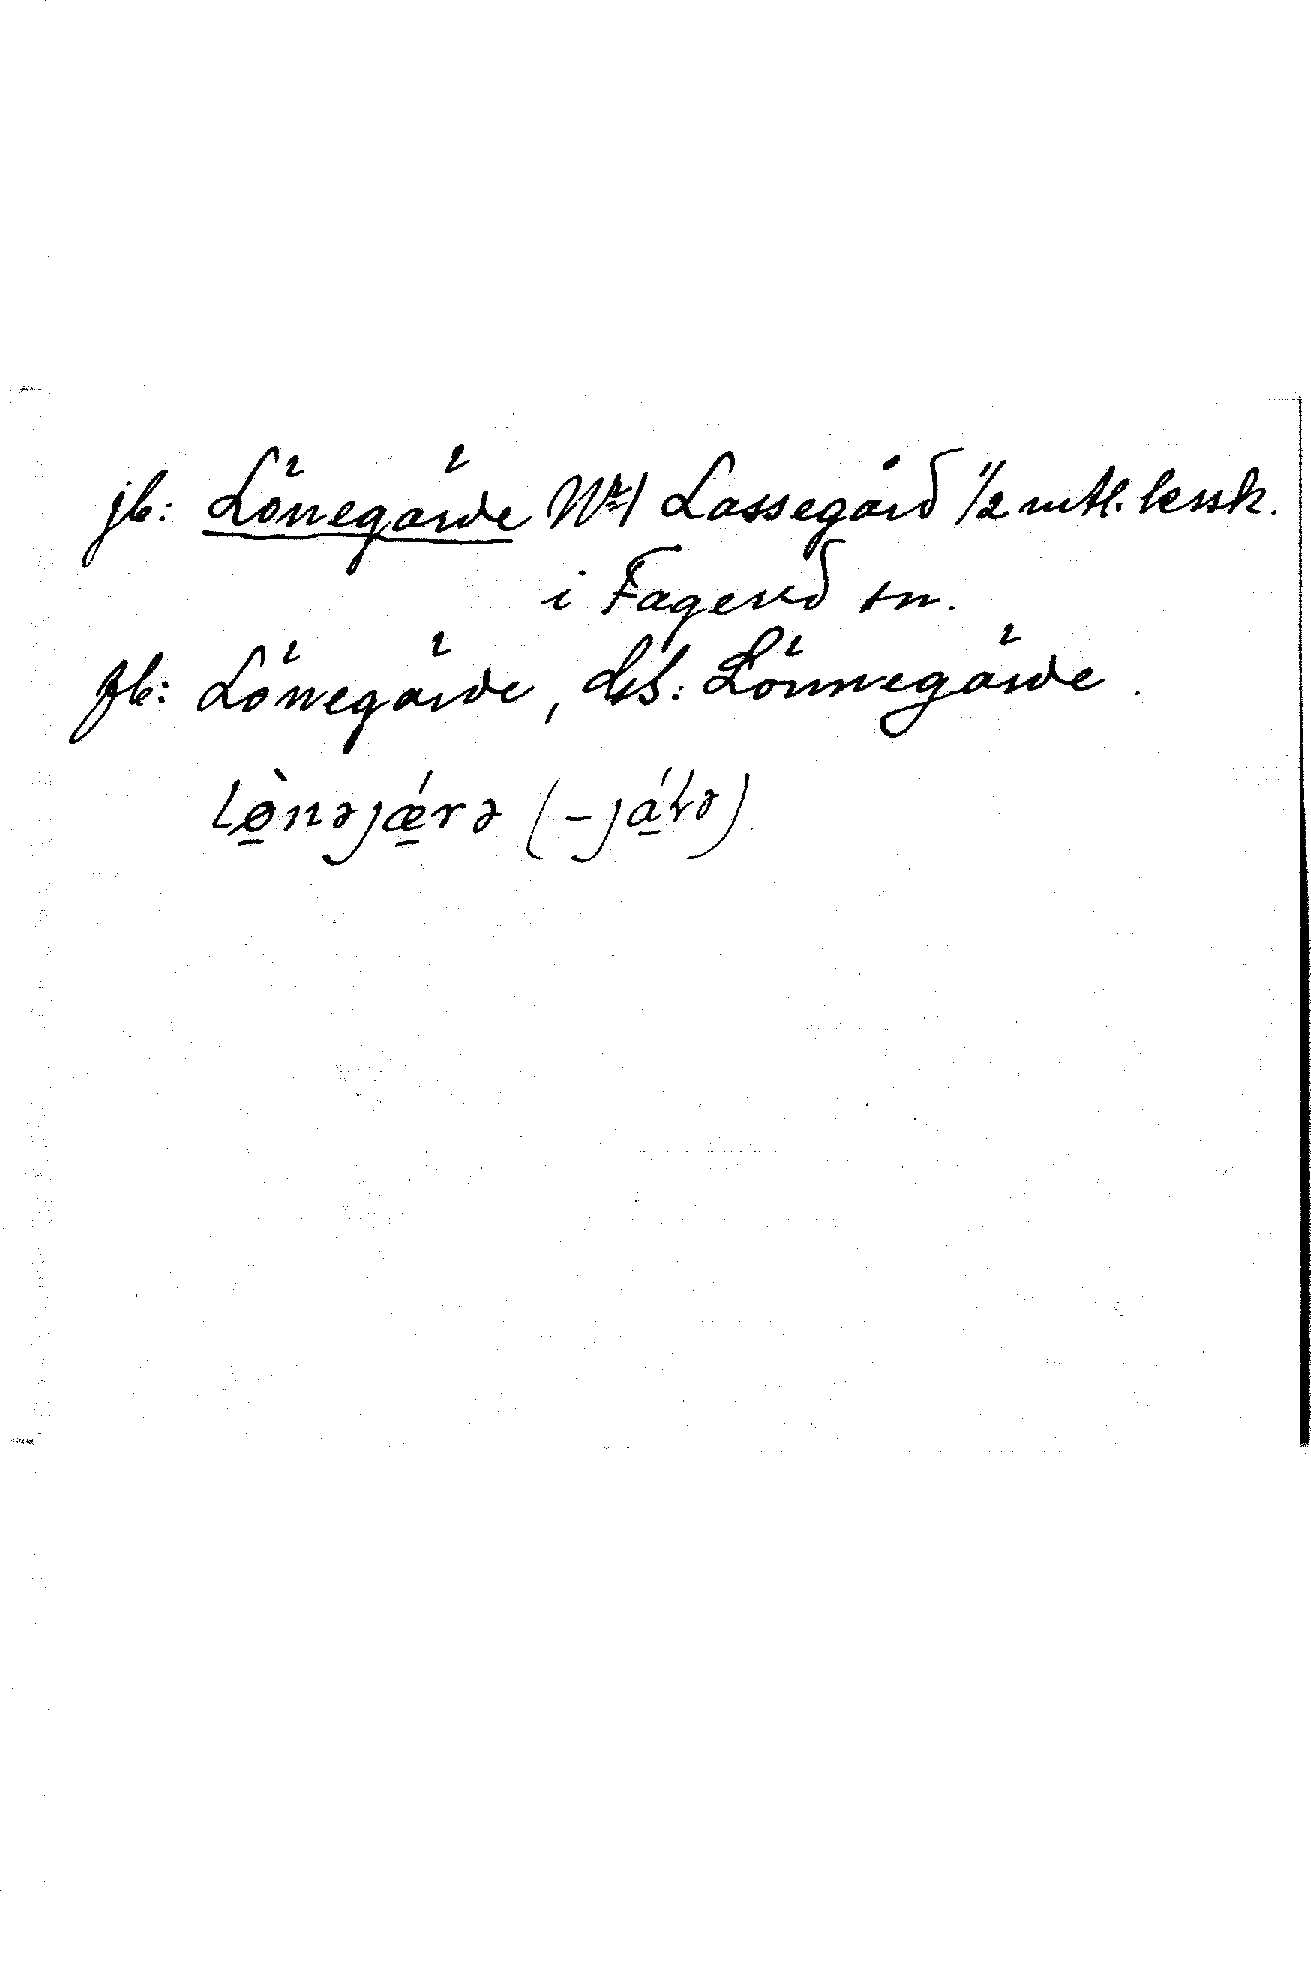 jb: Lönegärde Nr 1 Lassegård 1/2 mtl. krsk.
i Fagered sn.
fb: Lönegärde, Lds: Lönnegärde.
lø̀nəjǽrə (-já̱ɫə)